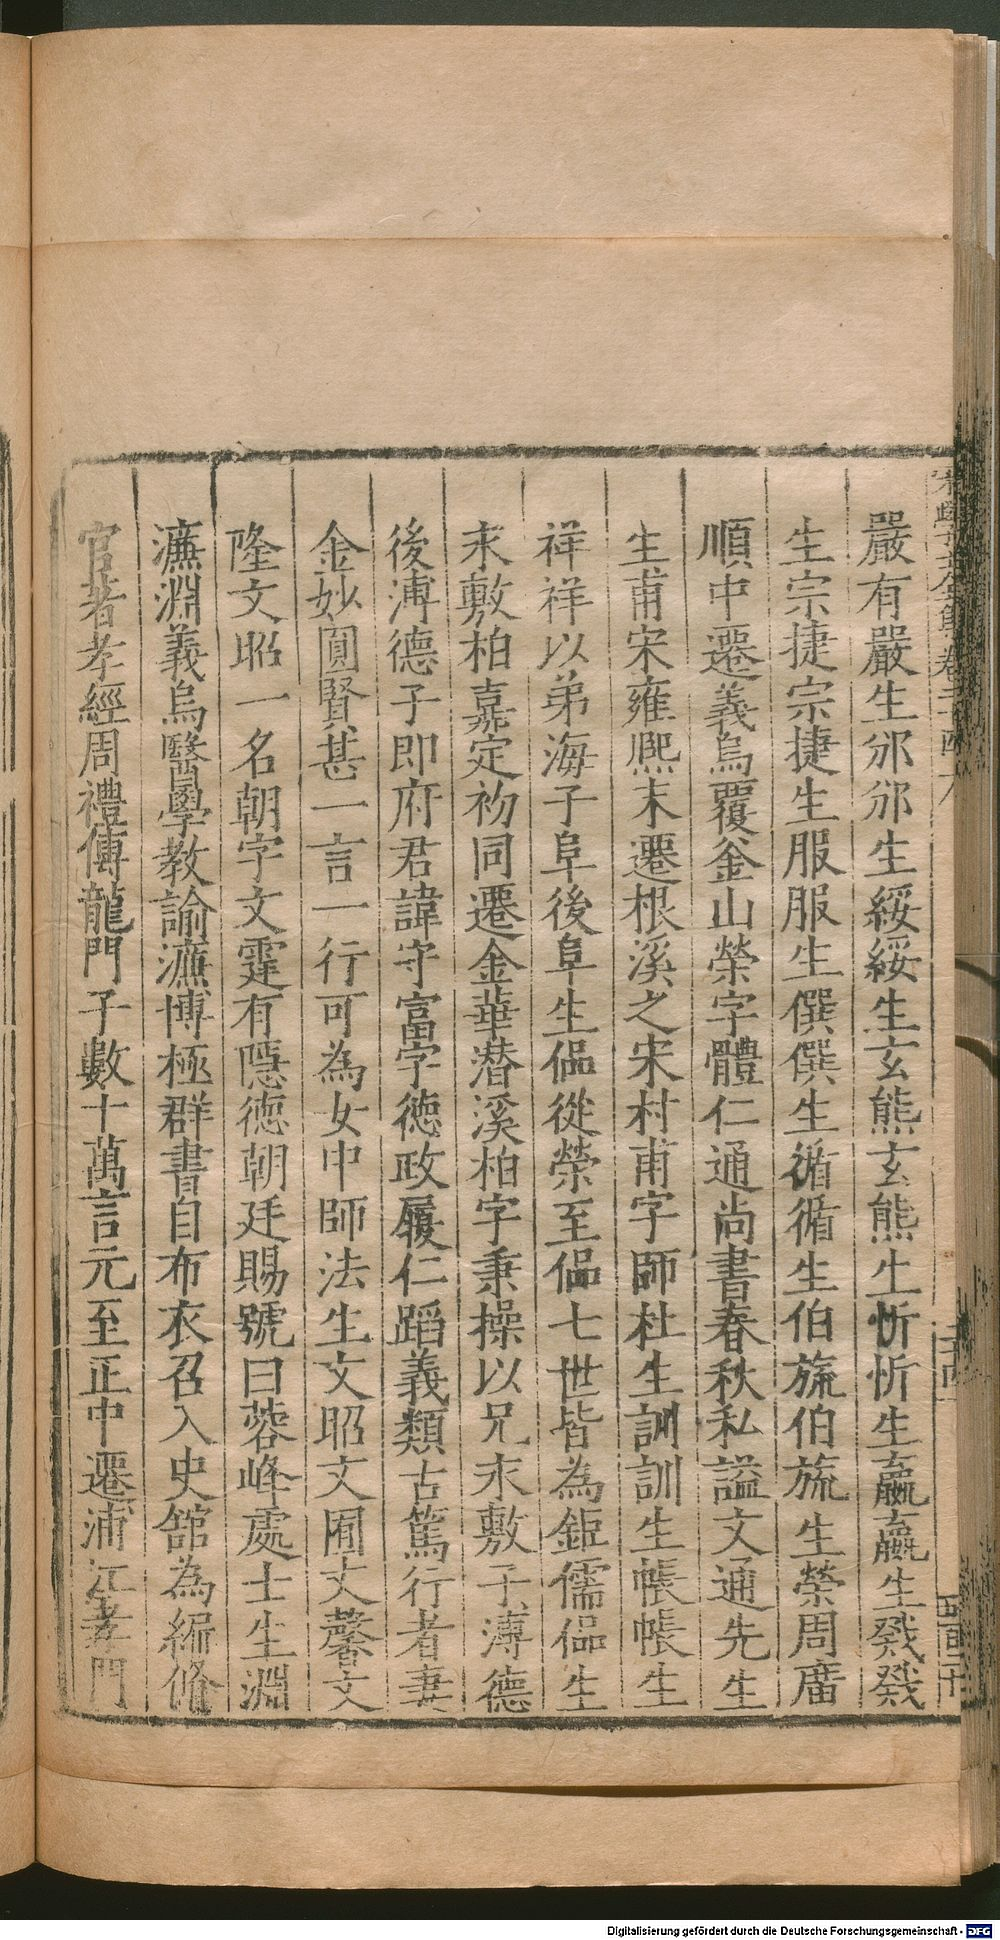 嚴有嚴生邠邠生綏綏生玄熊玄熊生忻忻生嬴嬴生發發
生宗捷宗捷生服服生僎僎生循循生伯旒伯旒生榮周廣
順中遷義烏覆釜山榮字體仁通尚書春秋私謚文通先生
生甫宋雍熈末遷根溪之宋村甫字師杜生訓訓生帳帳生
祥祥以弟海子阜後阜生偘從榮至偘七世皆為鉅儒偘生
末敷柏嘉定初同遷金華潜溪柏字秉操以兄末敷子溥德
後溥德子即府君諱守富字德政履仁蹈義類古篤行者妻
金妙圓賢甚一言一行可為女中師法生文昭文囿文馨文
隆文昭一名朝字文霆有隱德朝廷賜號曰蓉峰處士生淵
㢘淵義烏醫學教諭㢘博極群書自布衣召入史舘為編修
官著孝經周禮傳龍門子數十萬言元至正中遷浦江孝門
Digitalisierung gefördert durch die Deutsche Forschungsgemeinschaft - DFG